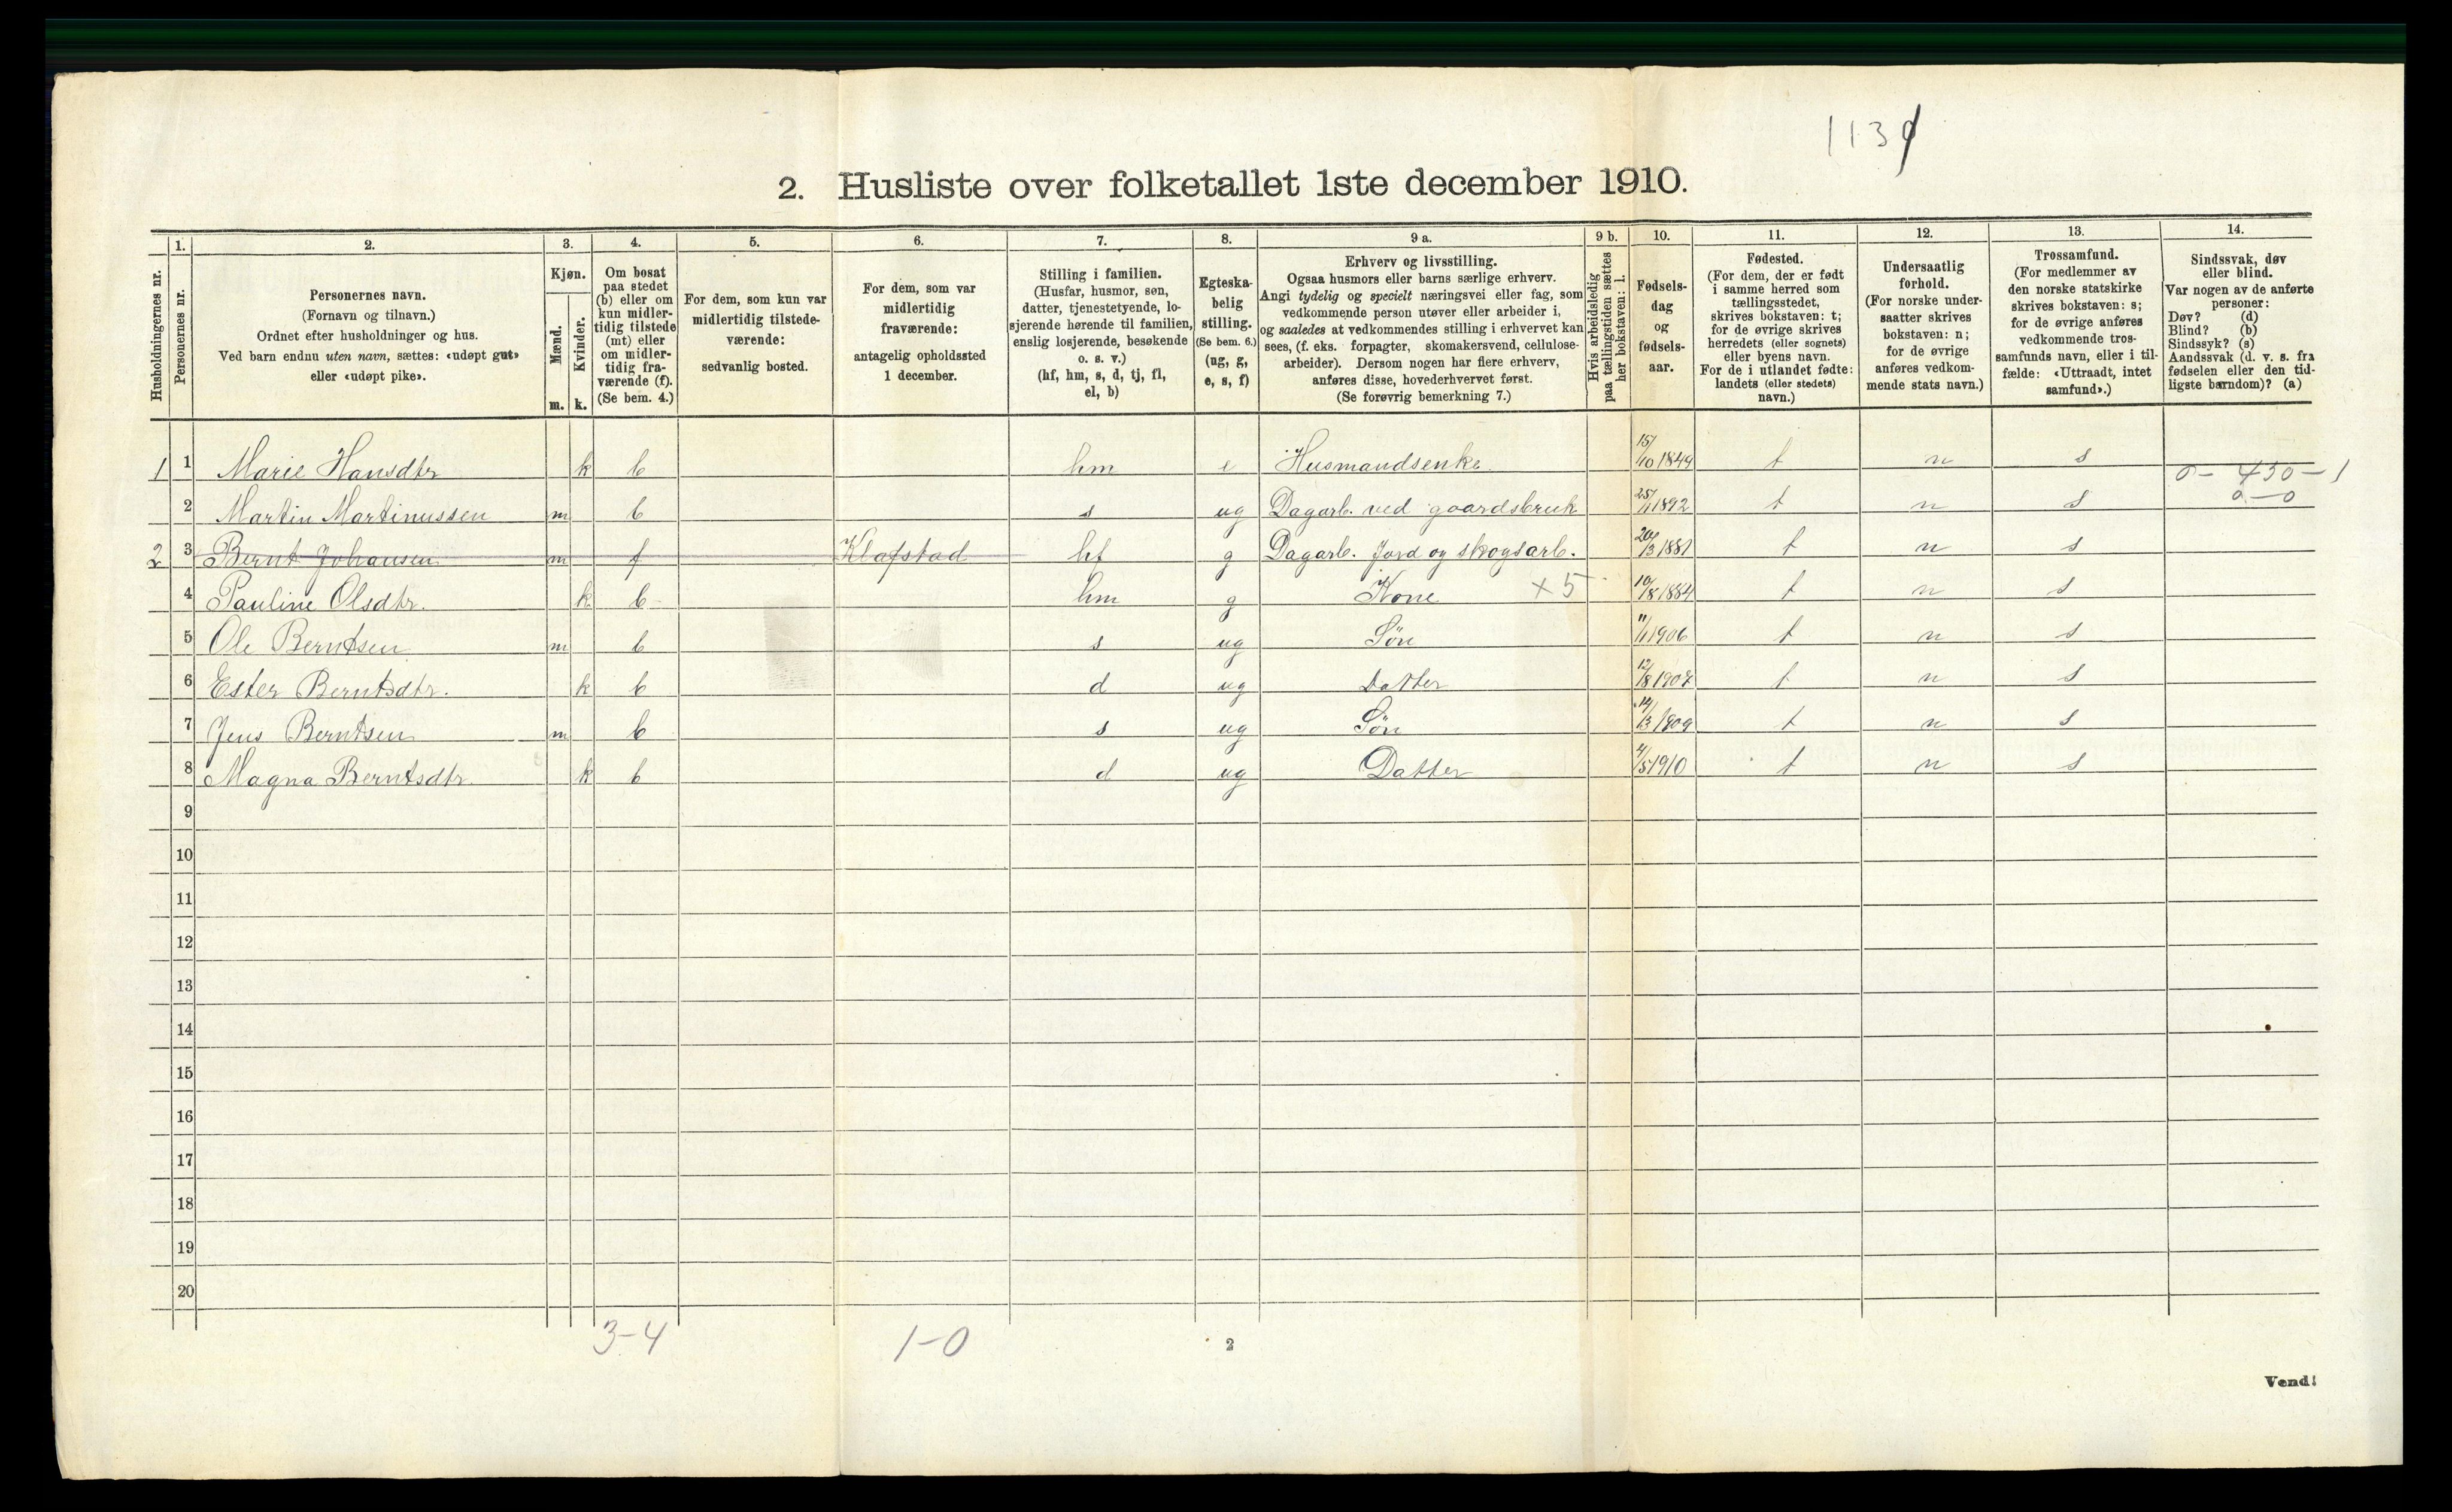 1139
2. Husliste over folketallet 1ste december 1910.
Husholdningernes nr.
1. Personernes nr.
2. Personernes navn. (Fornavn og tilnavn.) Ordnet efter husholdninger og hus. Ved barn endnu uten navn, sættes: «udøpt gut» eller «udøpt pike».
3. Kjøn. Mænd. m. Kvinder. k.
4. Om bosat paa stedet (b) eller om kun midlertidig tilstede (mt) eller om midlertidig fraværende (f). (Se bem. 4.)
5. For dem, som kun var midlertidig tilstedeværende: sedvanlig bosted.
6. For dem, som var midlertidig fraværende: antagelig opholdssted 1 december.
7. Stilling i familien. (Husfar, husmor, søn, datter, tjenestetyende, losjerende hørende til familien, enslig losjerende, besøkende o. s. v.) (hf, hm, s, d, tj, fl, el, b)
8. Egteskabelig stilling. (Se bem. 6.) (ug, g, e, s, f)
9 a. Erhverv og livsstilling. Ogsaa husmors eller barns særlige erhverv. Angi tydelig og specielt næringsvei eller fag, som vedkommende person utøver eller arbeider i, og saaledes at vedkommendes stilling i erhvervet kan sees, (f. eks. forpagter, skomakersvend, cellulosearbeider). Dersom nogen har flere erhverv, anføres disse, hovederhvervet først. (Se forøvrig bemerkning 7.)
9 b. Hvis arbeidsledig paa tællingstiden sættes her bokstaven: l.
10. Fødselsdag og fødselsaar.
11. Fødested. (For dem, der er født i samme herred som tællingsstedet, skrives bokstaven: t; for de øvrige skrives herredets (eller sognets) eller byens navn. For de i utlandet fødte: landets (eller stedets) navn.)
12. Undersaatlig forhold. (For norske undersaatter skrives bokstaven: n; for de øvrige anføres vedkommende stats navn.)
13. Trossamfund. (For medlemmer av den norske statskirke skrives bokstaven: s; for de øvrige anføres vedkommende trossamfunds navn, eller i tilfælde: «Uttraadt, intet samfund».)
14. Sindssvak, døv eller blind. Var nogen av de anførte personer: Døv? (d) Blind? (b) Sindssyk? (s) Aandssvak (d. v. s. fra fødselen eller den tidligste barndom)? (a)
1 1 Marie Hansdtr k b hm e Husmandsenke 15/10 1849 t n s 0 - 430 - 1
2 Martin Martinussen m b s ug Dagarb. ved gaardsbruk 25/11 1892 t n s 0 - 0
2 3 Bernt Johansen m f Klafstad hf g Dagarb. Jord og skogsarb. 20/3 1881 t n s
4 Pauline Olsdtr. k b hm g Kone x5 10/8 1884 t n s
5 Ole Berntsen m b s ug Søn 11/1 1906 t n s
6 Ester Berntsdtr. k b d ug Datter 12/8 1907 t n s
7 Jens Berntsen m b s ug Søn 14/3 1909 t n s
8 Magna Berntsdtr. k b d ug Datter 4/5 1910 t n s
9
10
11
12
13
14
15
16
17
18
19
20
3-4 1-0
2
Vend!